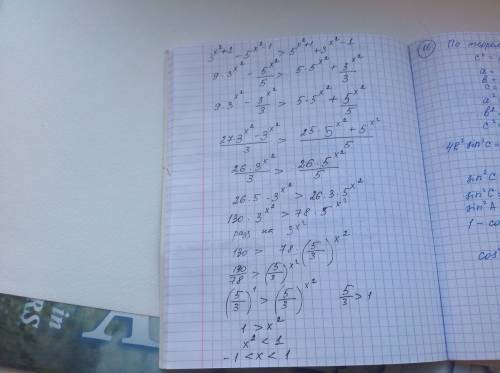 3^(x²+2) - 5^(x²-1) > 5^(x²+1) + 3^(x²-1)
9·3^(x²) - 5^(x²)/5 > 5·5^(x²) + 3^(x²)/3
9·3^(x²) - 3^(x²)/3 > 5·5^(x²) + 5^(x²)/5
(27·3^(x²) - 3^(x²))/3 > (25·5^(x²) + 5^(x²))/5
26·3^(x²)/3 > 26·5^(x²)/5
26·5·3^(x²) > 26·3·5^(x²)
130·3^(x²) > 78·5^(x²)
разд на 3^(x²)
130 > 78·(5/3)^(x²)
130/78 > (5/3)^(x²)
(5/3)^1 > (5/3)^(x²) 5/3 > 1
1 > x²
x² < 1
-1 < x < 1
16 По теореме
c² =
a =
b =
c =
a²
b²
c²
4R² sin²C =
sin²C
sin²C =
sin²A
1 - co
cos
in
RS.